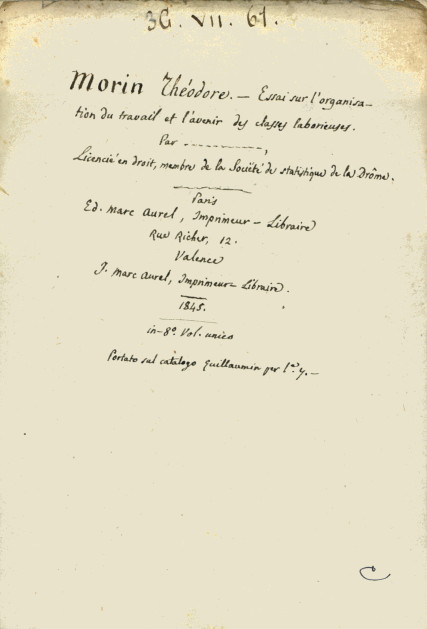 3G. VII. 61.
Morin Théodore. — Essai sur l'organisa-
tion du travail et l'avenir des classes laborieuses.
Par - - - - - - - - - - ,
Licencié en droit, membre de la Société de statistique de la Drôme.
Paris
Ed. Marc Aurel, Imprimeur - Libraire
Rue Richer, 12.
Valence
J. Marc Aurel, Imprimeur - Libraire.
1845.
in-8º. Vol. unico
Portato sul catalogo Guillaumin per